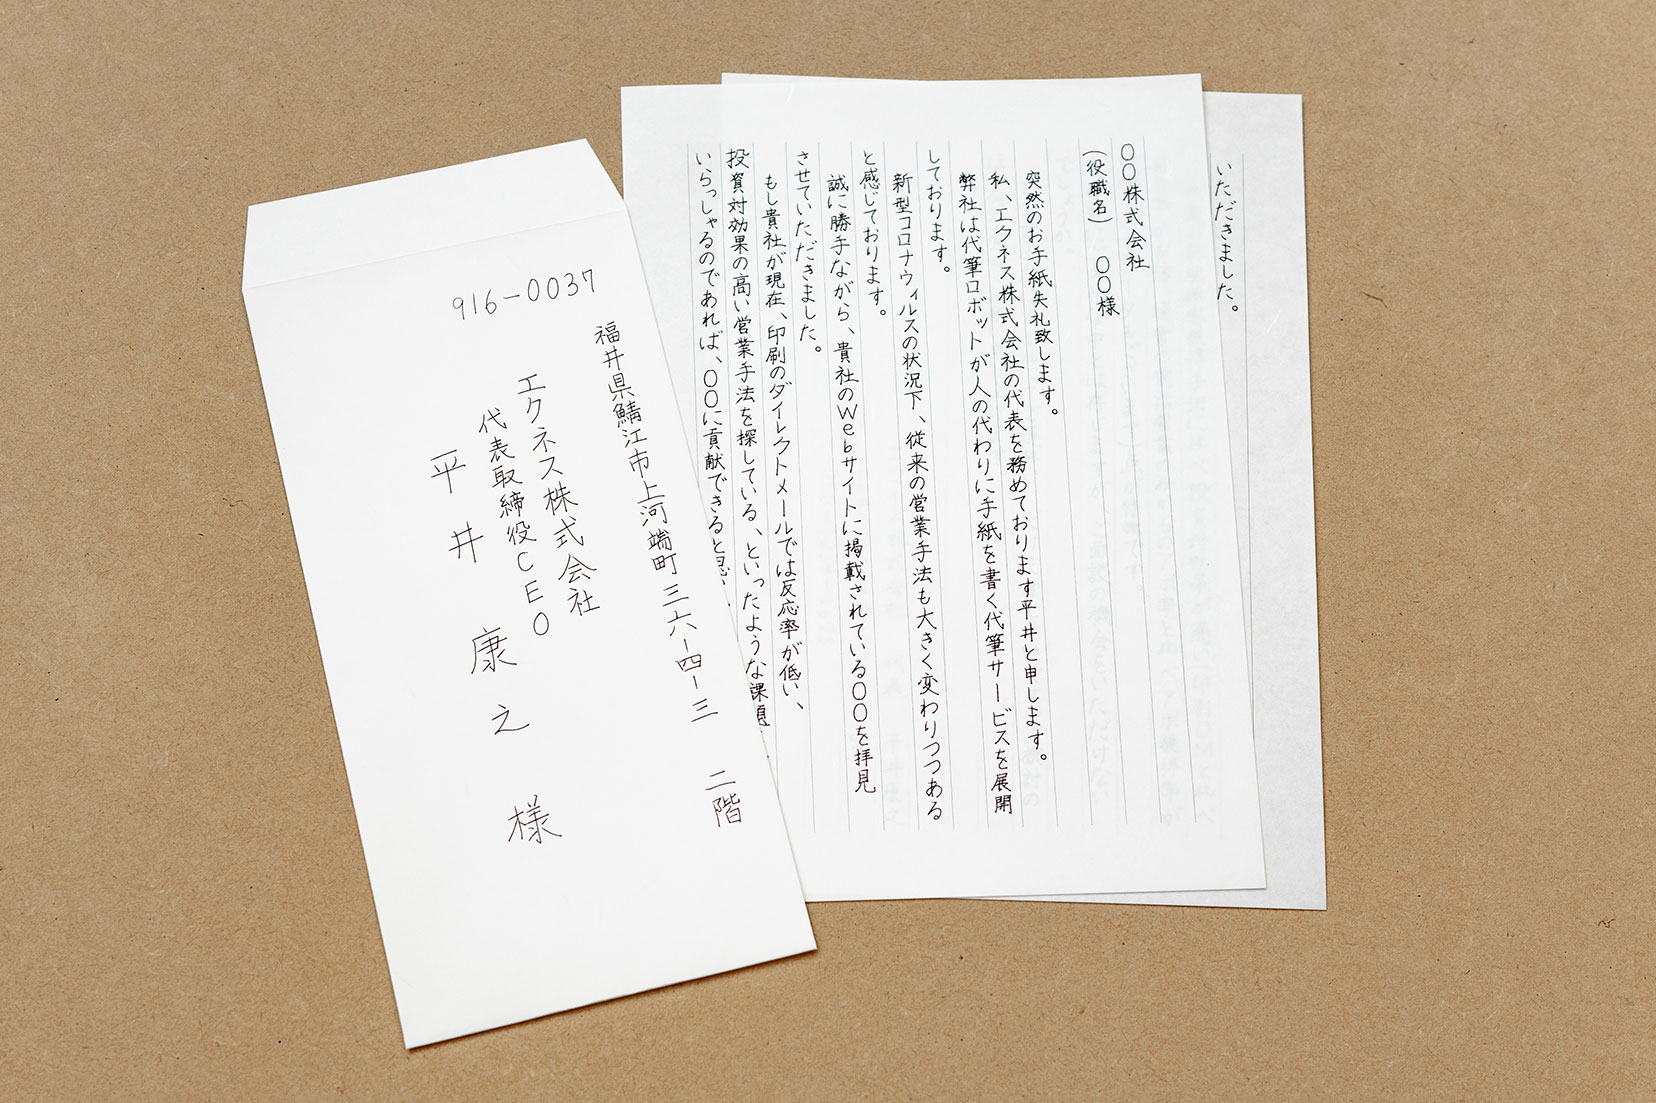 916-0037
福井県鯖江市上河端町三六-四-三 二階
エクネス株式会社
代表取締役CEO
平井康之様
〇〇株式会社
(役職名) 〇〇様
突然のお手紙失礼致します。
私、エクネス株式会社の代表を務めております平井と申します。
弊社は代筆ロボットが人の代わりに手紙を書く代筆サービスを展開
しております。
新型コロナウィルスの状況下、従来の営業手法も大きく変わりつつある
と感じております。
誠に勝手ながら、貴社のWebサイトに掲載されている〇〇を拝見
させていただきました。
もし貴社が現在、印刷のダイレクトメールでは反応率が低い、
投資対効果の高い営業手法を探している、といったような課題
いらっしゃるのであれば、〇〇に貢献できると思い
いただきました。